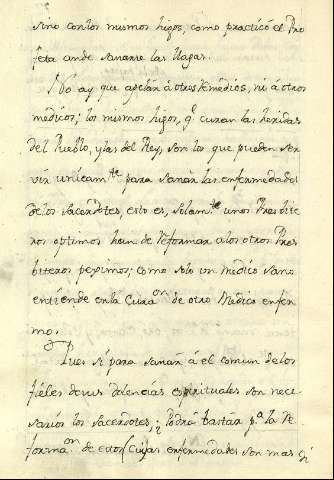 sino con los mismos higos, como practicó el Pro
feta an de sanarse las llagas.
No ay que apelàr á otros remedios, ni á otros
medicos; los mismos higos, q.e curan las heridas
del Pueblo, y las del Rey, son los que pueden ser
vir unicam.te para sanàr las enfermedades
de los sacerdotes, esto es, solam.te unos Presbite
ros optimos han de reformar a los otros Pres
biteros pessimos; como solo un medico sano
entiende en la Cura.on de otro Medico enfer
mo.
Pues si para sanàr á el comun de los
fieles de sus dolencias espirituales son nece
sarios los sacerdotes, podrà bastàr p.a la re
forma.on de estos (cuyas enfermedades son mas